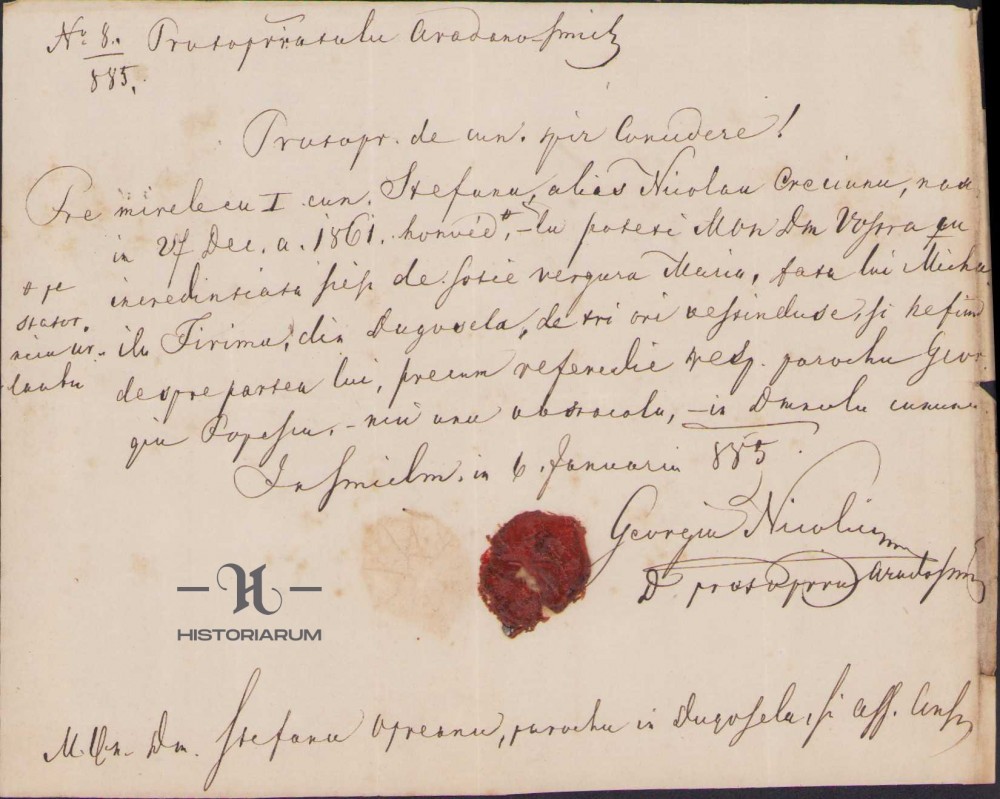 Nr. 8.
885.
Protoprratulu Aradano-Smielu
Protopr. de cun. spir Concedere!
Pre mirelecu I cun. Stefanu, alias Nicolau Creciunu, nas.
in 27 Dec. a. 1861. honvéd, - lu poteti Mon Dm Vostra cu
incredintiata siesi de sotie vergura Maria, fata lui Micha
ilu Firima, din Dugosela, de tri ori vestinduse, si nefiind
despre partea lui, precum referedie resp. parochu Geor
giu Popescu, - nici unu obstaculu, - in Domnulu cununa
+ pe
stator.
niciur.
lautu
In Smielu. in 6. Januariu 885.
Georgiu Nicolici
D protoprru Aradosmi
HISTORIARUM
M. On. Dm. Stefanu Opreanu, parochu in Dugosela, si aff.